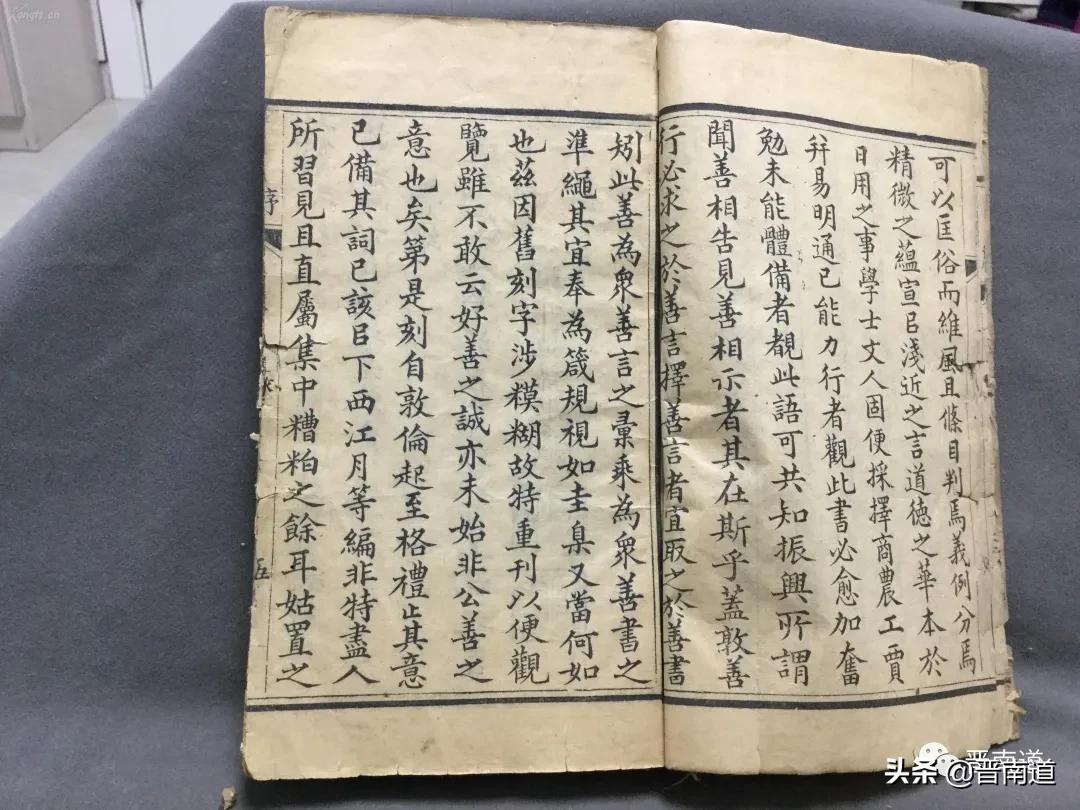 可以匡俗而維風且條目判焉義例分焉
精微之蘊宣㠯淺近之言道德之華本於
日用之事學士文人固便採擇商農工賈
幷易明通已能力行者觀此書必愈加奮
勉未能體備者覩此語可共知振興所謂
聞善相告見善相示者其在斯乎蓋敦善
行必求之於善言擇善言者宜取之於善書
矧此善為衆善言之彙乘為衆善書之
準繩其宜奉為箴規視如圭臬又當何如
也茲因舊刻字涉糢糊故特重刊以便觀
覽雖不敢云好善之誠亦未始非公善之
意也矣第是刻自敦倫起至格禮止其意
已備其詞已該㠯下西江月等編非特盡人
所習見且直屬集中糟粕之餘耳姑置之
序
五
Kongfz.cn
晋南道
头条 @晋南道